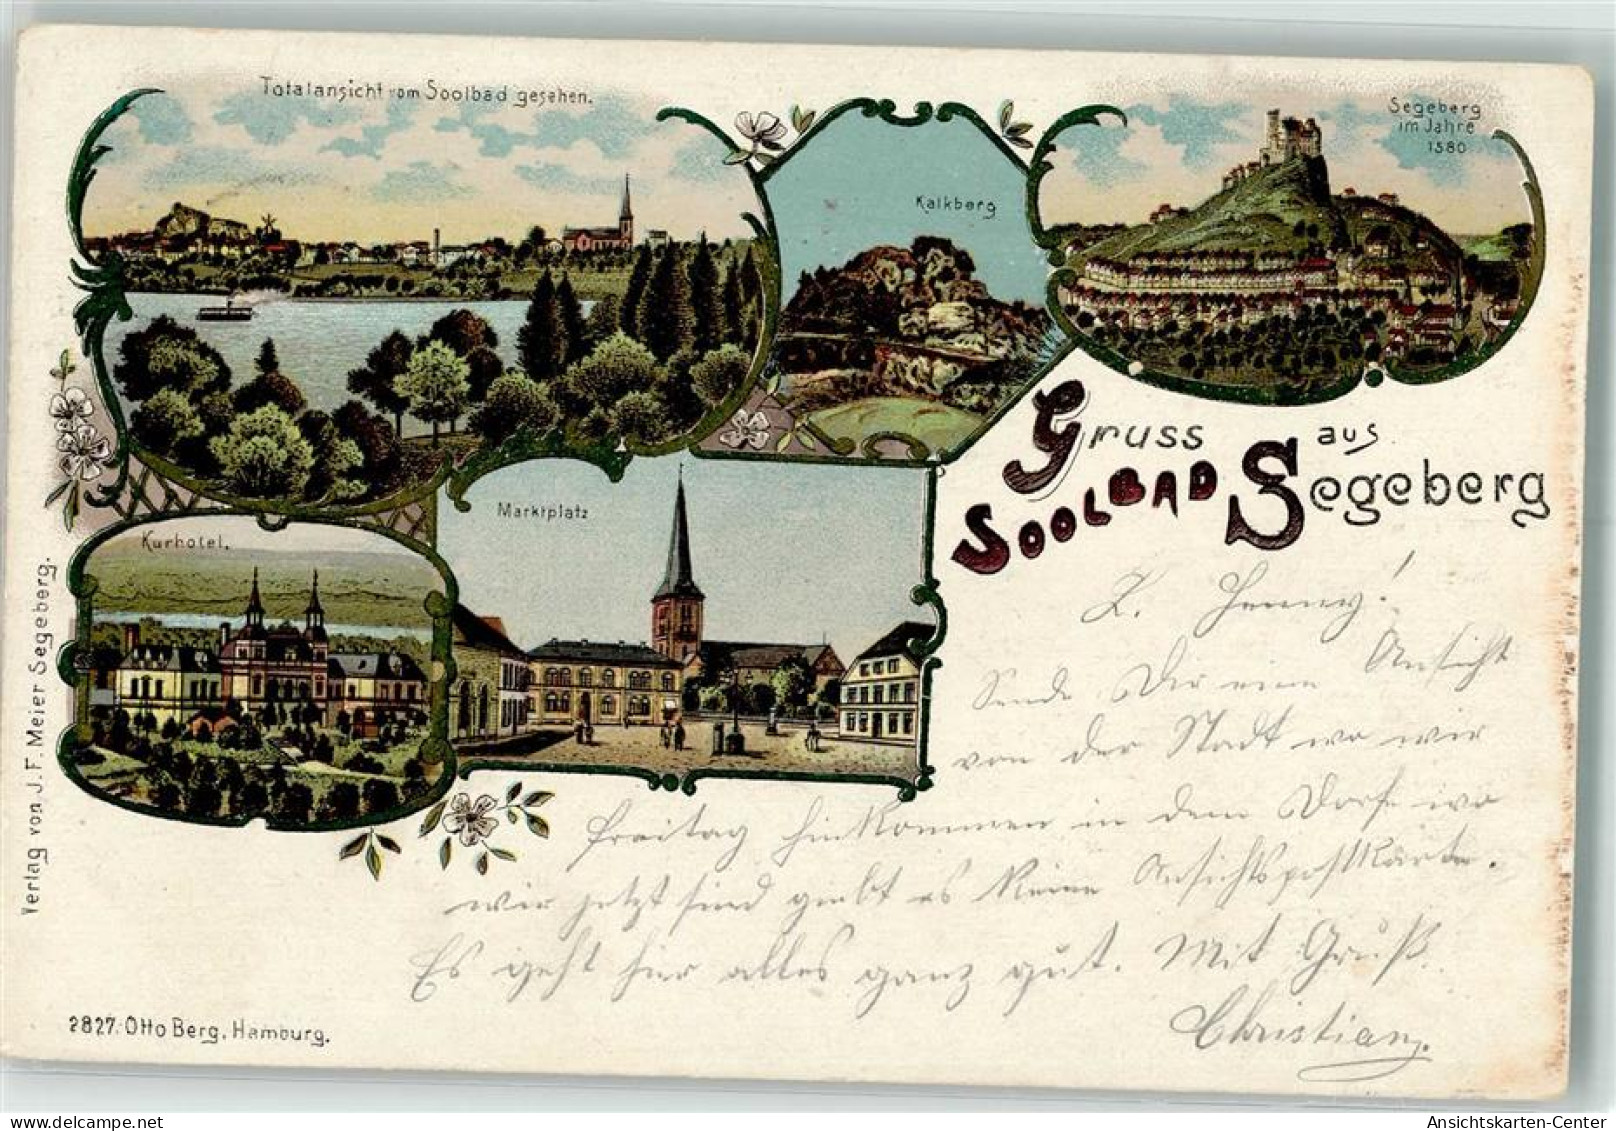 Totalansicht vom Soolbad gesehen.
Kalkberg
Segeberg
im Jahre
1580
Gruss aus
Soolbad Segeberg
Marktplatz
Kurhotel.
L. Henny!
Sende Dir eine Ansicht
von der Stadt wo wir
Freitag hinkommen in dem Dorfe wo
wir jetzt sind giebt es keine Ansichtspostkarte.
Es geht hier alles ganz gut. Mit Gruß
Christian.
Verlag von J. F. Meier Segeberg.
2827. Otto Berg, Hamburg.
Ansichtskarten-Center